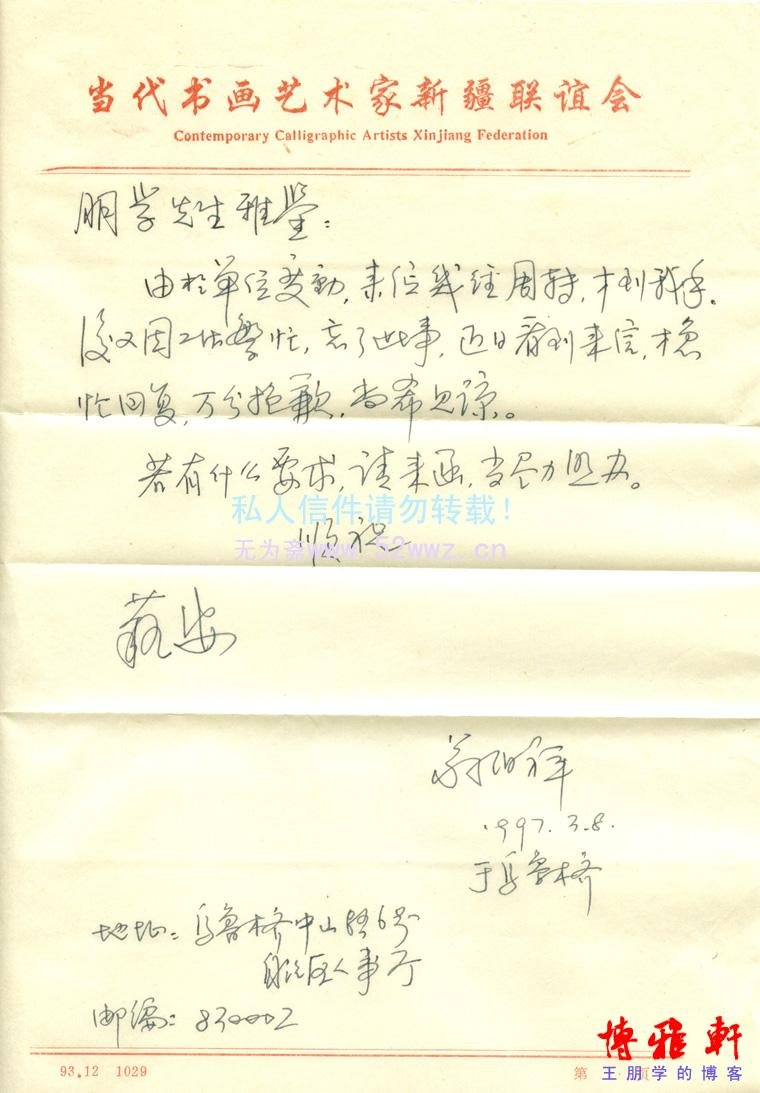 当代书画艺术家新疆联谊会
Contemporary Calligraphic Artists Xinjiang Federation
朋学先生雅鉴：
由于单位变動，来信幾经周转，才到我手。
後又因工作繁忙，忘了此事，近日看到来信，才急
忙回复，万分抱歉，尚希见谅。
若有什么要求，请来函，当尽力照办。
私人信件请勿转载！
顺祝
无为斋www.52wwz.cn
安
1997.3.8.
于乌鲁木齐
地址：乌鲁木齐中山路6号
自治区人事厅
邮编：830002
博雅軒
93.12 1029
第 页
王朋学的博客